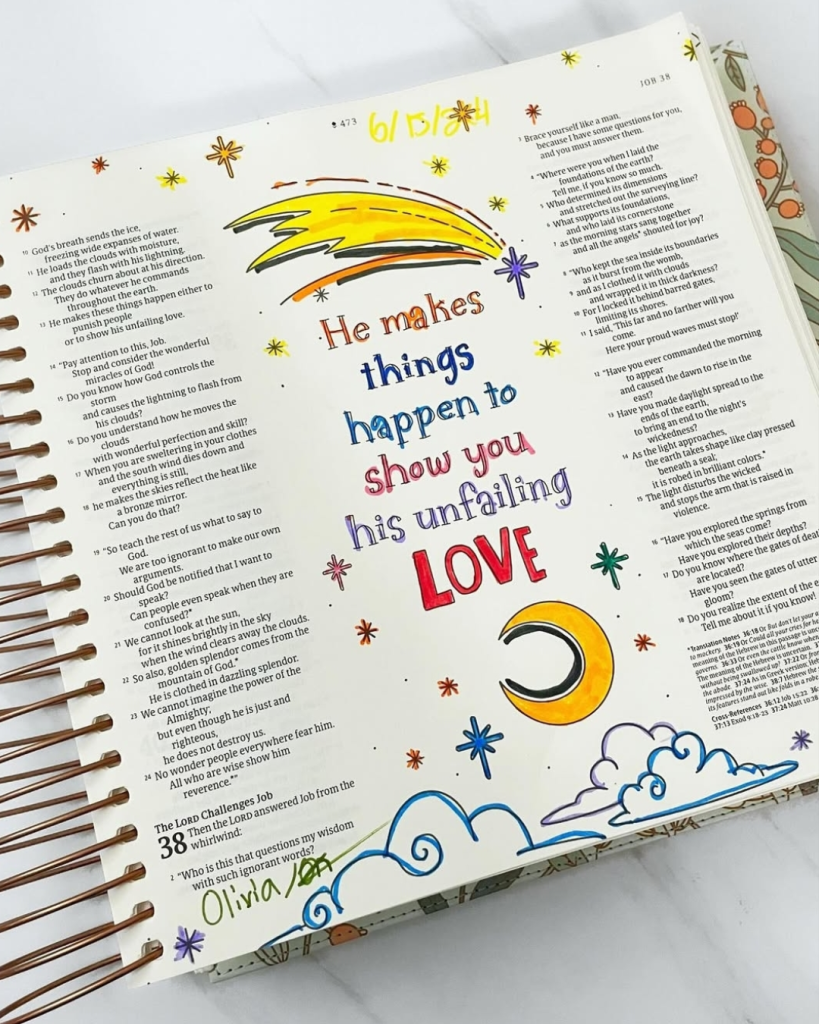 473
6/15/24
JOB 38
10 God's breath sends the ice,
freezing wide expanses of water.
11 He loads the clouds with moisture,
and they flash with his lightning.
12 The clouds churn about at his direction.
They do whatever he commands
throughout the earth.
13 He makes these things happen either to
punish people
or to show his unfailing love.
14 "Pay attention to this, Job.
Stop and consider the wonderful
miracles of God!
15 Do you know how God controls the
storm
and causes the lightning to flash from
his clouds?
16 Do you understand how he moves the
clouds
with wonderful perfection and skill?
17 When you are sweltering in your clothes
and the south wind dies down and
everything is still,
18 he makes the skies reflect the heat like
a bronze mirror.
Can you do that?
19 "So teach the rest of us what to say to
God.
We are too ignorant to make our own
arguments.
20 Should God be notified that I want to
speak?
Can people even speak when they are
confused?*
21 We cannot look at the sun,
for it shines brightly in the sky
when the wind clears away the clouds.
22 So also, golden splendor comes from the
mountain of God.*
He is clothed in dazzling splendor.
23 We cannot imagine the power of the
Almighty;
but even though he is just and
righteous,
he does not destroy us.
24 No wonder people everywhere fear him.
All who are wise show him
reverence.*"
The LORD Challenges Job
38 Then the LORD answered Job from the
whirlwind:
2 "Who is this that questions my wisdom
with such ignorant words?
Olivia
He makes
things
happen to
show you
his unfailing
LOVE
3 Brace yourself like a man,
because I have some questions for you,
and you must answer them.
4 "Where were you when I laid the
foundations of the earth?
Tell me, if you know so much.
5 Who determined its dimensions
and stretched out the surveying line?
6 What supports its foundations,
and who laid its cornerstone
7 as the morning stars sang together
and all the angels* shouted for joy?
8 "Who kept the sea inside its boundaries
as it burst from the womb,
9 and as I clothed it with clouds
and wrapped it in thick darkness?
10 For I locked it behind barred gates,
limiting its shores.
11 I said, 'This far and no farther will you
come.
Here your proud waves must stop!'
12 "Have you ever commanded the morning
to appear
and caused the dawn to rise in the
east?
13 Have you made daylight spread to the
ends of the earth,
to bring an end to the night's
wickedness?
14 As the light approaches,
the earth takes shape like clay pressed
beneath a seal;
it is robed in brilliant colors.*
15 The light disturbs the wicked
and stops the arm that is raised in
violence.
16 "Have you explored the springs from
which the seas come?
Have you explored their depths?
17 Do you know where the gates of death
are located?
Have you seen the gates of utter
gloom?
18 Do you realize the extent of the
Tell me about it if you know!
*Translation Notes 36:18 Or But don't let your
to mockers 36:19 Or Could all your cries for he
meaning of the Hebrew in this passage is unc
governs 36:33 Or even the cattle know when
The meaning of the Hebrew is uncertain.
without being swallowed up? 37:22 Or fr
the abode 37:24 As in Greek version; Heb
impressed by the wise. 38:7 Hebrew the
its features stand out like folds in a robe
Cross-References 36:12 Job 15:22
37:13 Exod 9:18-23 37:24 Matt 10:28